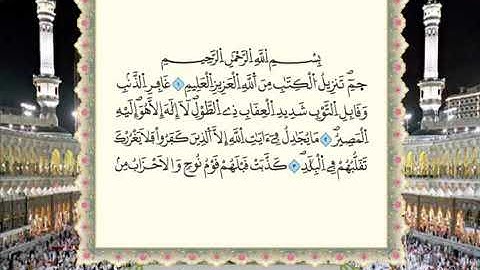 بِسْمِ اللَّهِ الرَّحْمَٰنِ الرَّحِيمِ
حمٓ تَنزِيلُ الْكِتَابِ مِنَ اللَّهِ الْعَزِيزِ الْعَلِيمِ ۝٢ غَافِرِ الذَّنۢبِ
وَقَابِلِ التَّوْبِ شَدِيدِ الْعِقَابِ ذِي الطَّوْلِ لَا إِلَٰهَ إِلَّا هُوَ إِلَيْهِ
الْمَصِيرُ ۝٣ مَا يُجَادِلُ فِي آيَاتِ اللَّهِ إِلَّا الَّذِينَ كَفَرُوا فَلَا يَغْرُرْكَ
تَقَلُّبُهُمْ فِي الْبِلَادِ ۝٤ كَذَّبَتْ قَبْلَهُمْ قَوْمُ نُوحٍ وَالْأَحْزَابُ مِن